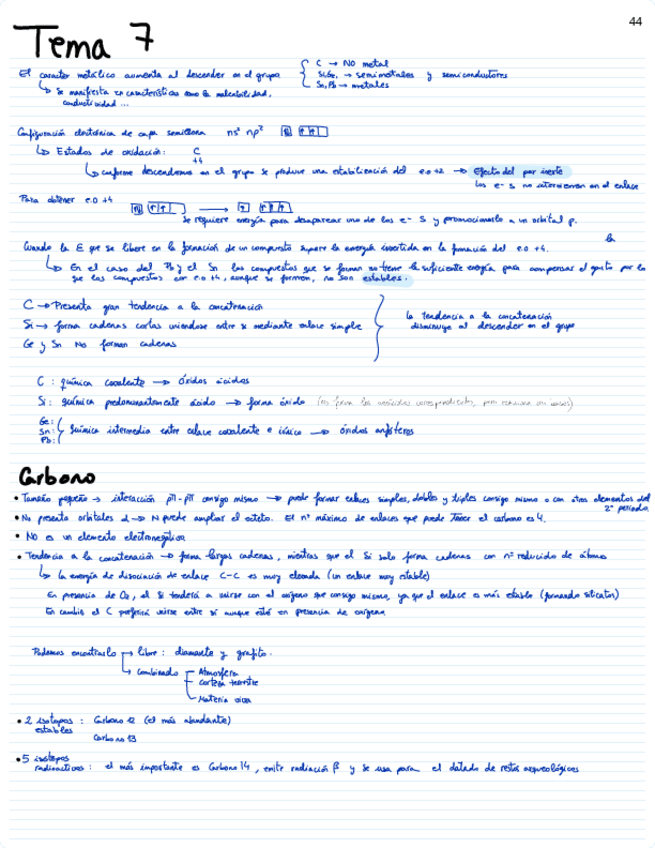 44
Tema 7
El caracter metálico aumenta al descender en el grupo
C → NO metal
Si, Ge, → semimetales y semiconductores
Sn, Pb → metales
↳ Se manifiesta en características como la maleabilidad,
conductividad ...
Configuración electrónica de capa semillena ns² np²
↳ Estados de oxidación: C
+4
↳ conforme descendemos en el grupo se produce una estabilización del e.o +2 → Efecto del par inerte
Los e- s no intervienen en el enlace
Para obtener e.o +4
Se requiere energía para desaparear uno de los e- s y promocionarlo a un orbital p.
Cuando la E que se libere en la formación de un compuesto supere la energía invertida en la formación del e.o +4.
la
↳ En el caso del Pb y el Sn los compuestos que se forman no tiene la suficiente energía para compensar el gasto por lo
que los compuestos con e.o +4, aunque se formen, no son estables.
C → Presenta gran tendencia a la concatenación
Si → forma cadenas cortas uniendose entre si mediante enlace simple
Ge y Sn No forman cadenas
la tendencia a la concatenación
disminuye al descender en el grupo
C : química covalente → óxidos ácidos
Si : química predominantemente ácido → forma óxido (no forma los oxiácidos correspondientes, pero reacciona con bases)
Ge:
Sn:
Pb:
química intermedia entre enlace covalente e iónico → óxidos anfóteros
Carbono
• Tamaño pequeño → interacción pπ-pπ consigo mismo → puede formar enlaces simples, dobles y triples consigo mismo o con otros elementos del
2º periodo
• No presenta orbitales d → N puede ampliar el octeto. El nº máximo de enlaces que puede tener el carbono es 4.
• NO es un elemento electronegativo
• Tendencia a la concatenación → forma largas cadenas, mientras que el Si solo forma cadenas con nº reducido de átomos
↳ la energía de disociación de enlace C-C es muy elevada (un enlace muy estable)
En presencia de O₂, el Si tenderá a unirse con el oxígeno que consigo mismo, ya que el enlace es más estable (formando silicatos)
En cambio el C preferirá unirse entre sí aunque esté en presencia de oxígeno
Podemos encontrarlo → libre : diamante y grafito.
↳ Combinado
Atmosfera
Corteza terrestre
Materia viva
• 2 isotopos : Carbono 12 (el más abundante)
estables
Carbono 13
• 5 isótopos
radiactivos : el más importante es Carbono 14, emite radiación β y se usa para el datado de restos arqueológicos